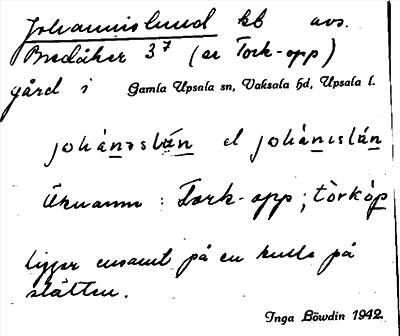 Johannislund kb avs.
Bredåker 3⁷ (er Tork-opp)
gård i Gamla Upsala sn, Vaksala hd, Upsala l.
johánəslán el johánislán
Öknamn : Tork-opp ; tòrkóp
ligger ensamt på en kulle på
slätten.
Inga Böwdin 1942.